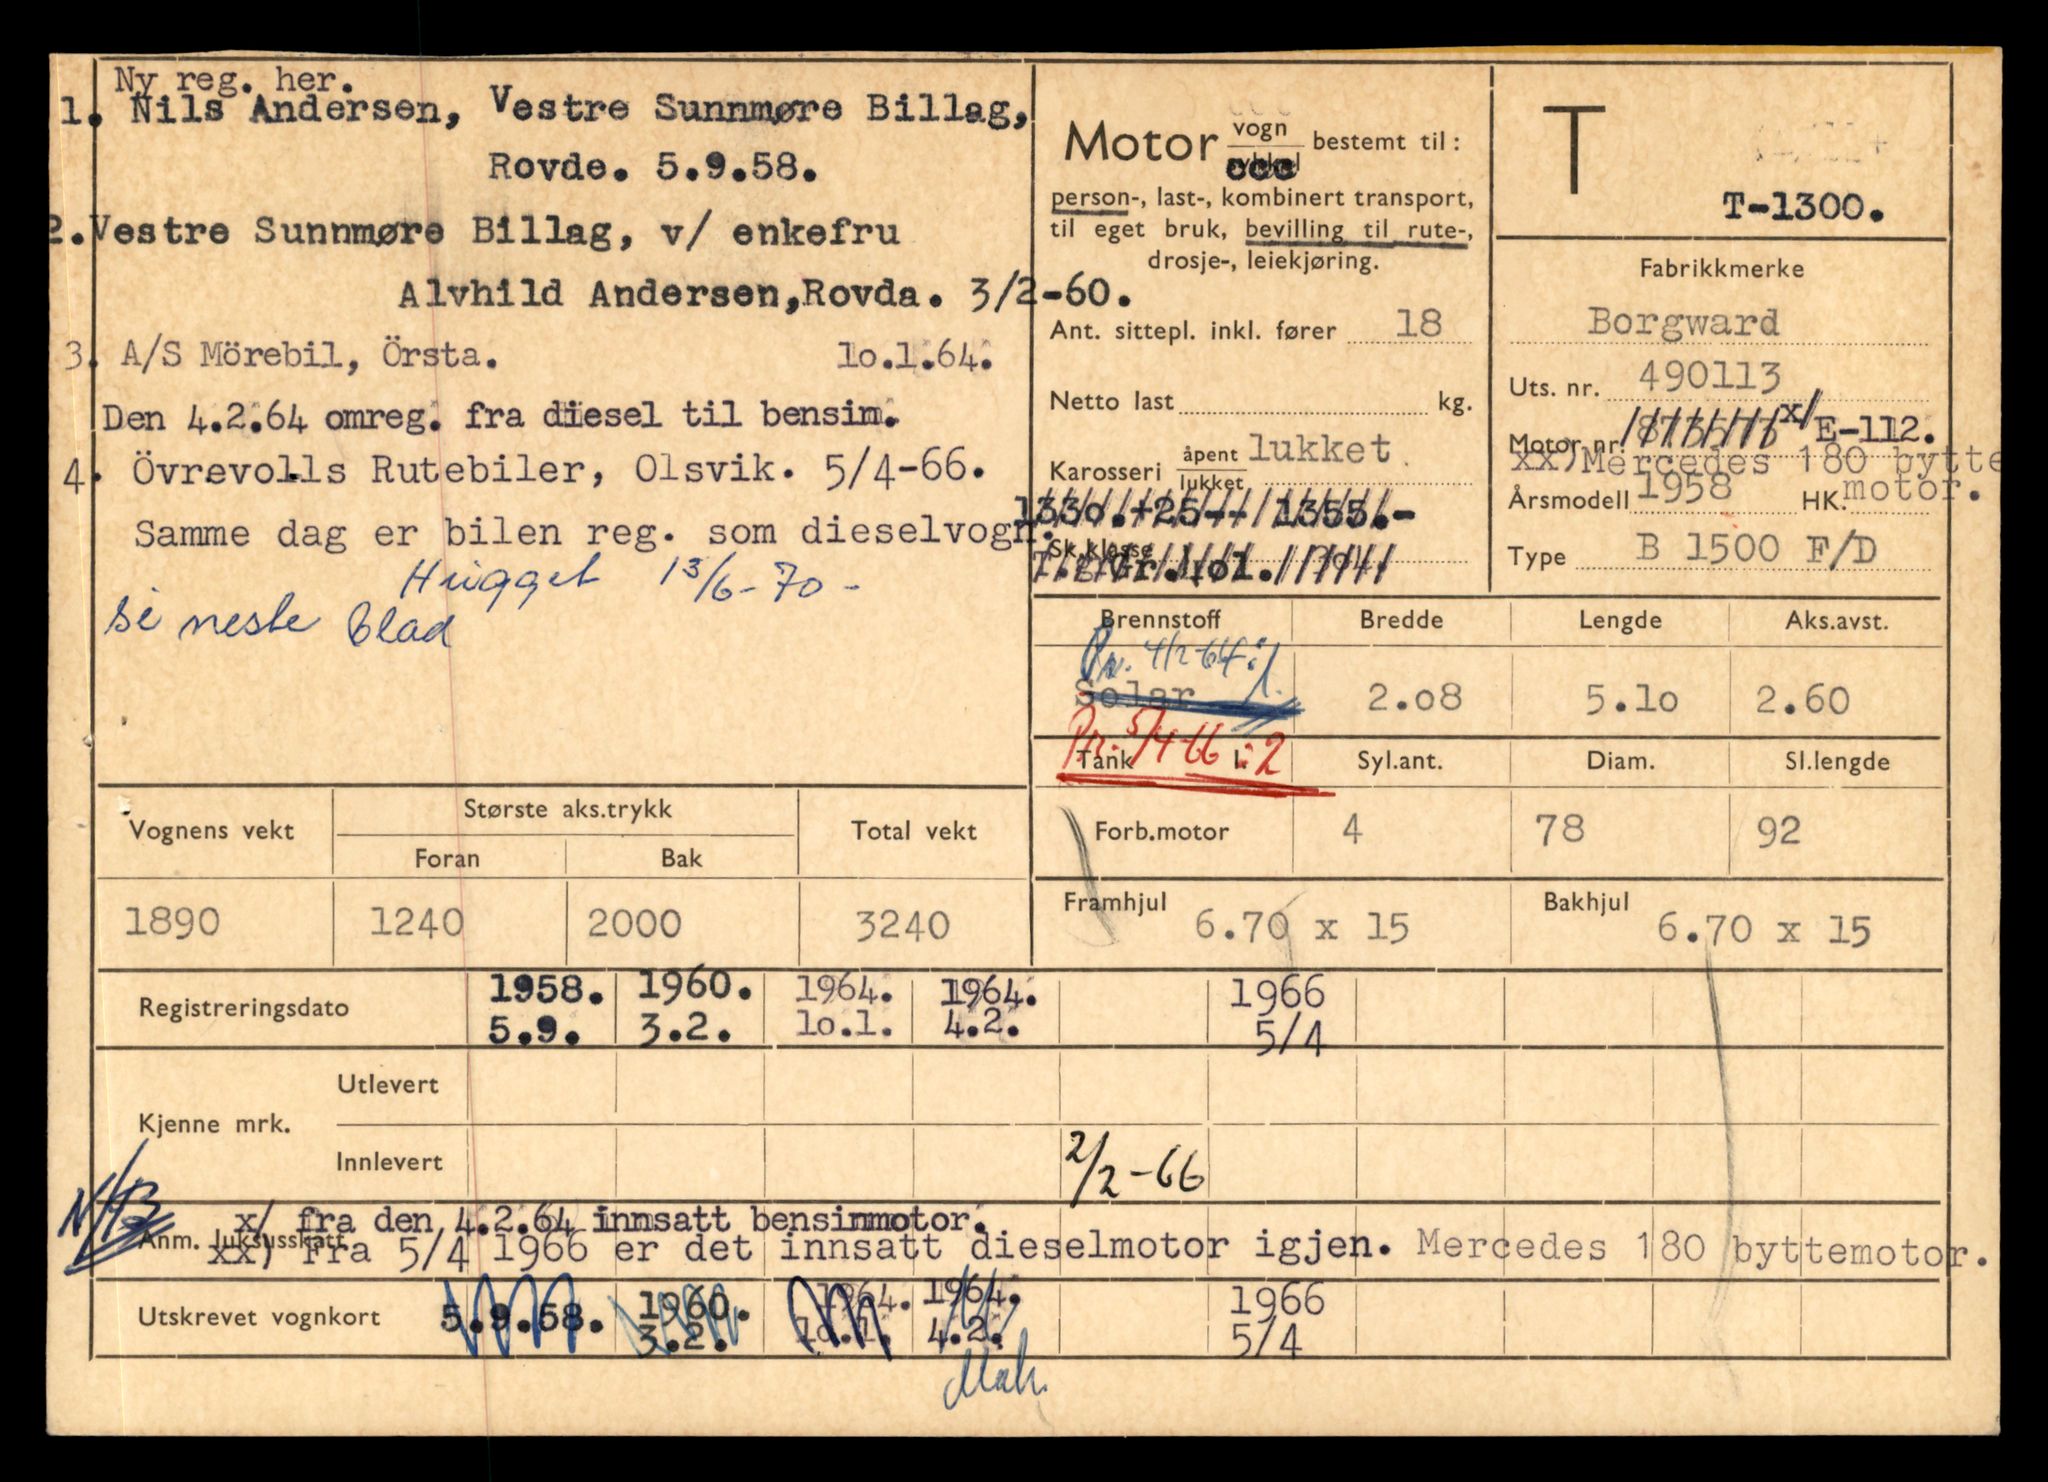 Ny reg. her.
1. Nils Andersen, Vestre Sunnmøre Billag,
Rovde. 5.9.58.
2. Vestre Sunnmøre Billag, v/ enkefru
Alvhild Andersen, Rovda. 3/2-60.
3. A/S Mörebil, Örsta. 10.1.64.
Den 4.2.64 omreg. fra diesel til bensin.
4. Övrevolls Rutebiler, Olsvik. 5/4-66.
Samme dag er bilen reg. som dieselvogn.
Hugget 13/6-70-
se neste blad
Motor vogn bestemt til:
person-, last-, kombinert transport,
til eget bruk, bevilling til rute-,
drosje-, leiekjøring.
Ant. sittepl. inkl. fører 18
Netto last kg.
Karosseri åpent lukket lukket
1330.+25-- 1355.-
Sk.klasse
T
T-1300.
Fabrikkmerke
Borgward
Uts. nr. 490113
Motor nr. x/ E-112.
xx) Mercedes 180 bytte
motor.
Årsmodell 1958 HK.
Type B 1500 F/D
Brennstoff Bredde Lengde Aks.avst.
Pr. 4/2-64: 1.
Solar 2.08 5.10 2.60
Pr. 5/4-66: 2
Tank l. Syl.ant. Diam. Sl.lengde
Forb.motor 4 78 92
Framhjul 6.70 x 15 Bakhjul 6.70 x 15
Vognens vekt Største aks.trykk Total vekt
Foran Bak
1890 1240 2000 3240
Registreringsdato 1958. 1960. 1964. 1964. 1966
5.9. 3.2. 10.1. 4.2. 5/4
Kjenne mrk. Utlevert
Innlevert 2/2-66
x/ fra den 4.2.64 innsatt bensinmotor.
Anm. luksusskatt
xx) Fra 5/4 1966 er det innsatt dieselmotor igjen. Mercedes 180 byttemotor.
Utskrevet vognkort 5.9.58. 1960. 1964. 1964. 1966
3.2. 10.1. 4.2. 5/4